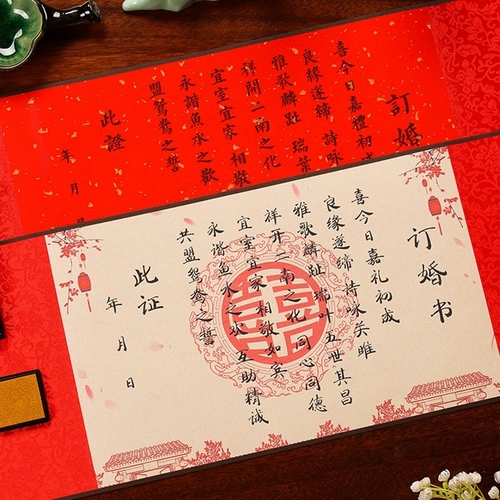 訂婚
喜今日嘉禮初
良緣遂締 詩詠
雅歌麟趾 瑞葉
祥開二南之化
宜室宜家 相敬
永諧魚水之歡
盟鴛鴦之誓
此證
年 月 日
订婚书
喜今日嘉礼初成
良缘遂缔 诗咏关雎
雅歌麟趾 瑞叶五世其昌
祥开二南之化 同心同德
宜室宜家 相敬如宾
永谐鱼水之欢 互助精诚
共盟鸳鸯之誓
此证
年 月 日